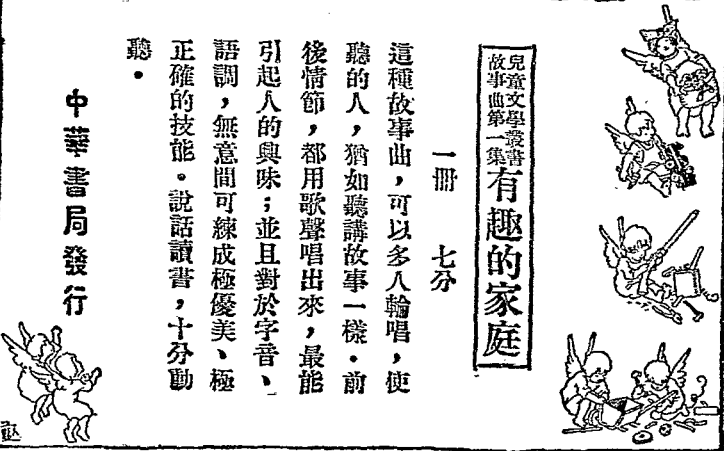 兒童文學叢書
故事曲第一集
有趣的家庭
一冊 七分
這種故事曲，可以多人輪唱，使
聽的人，猶如聽講故事一樣．前
後情節，都用歌聲唱出來，最能
引起人的興味；並且對於字音、
語調，無意間可練成極優美、極
正確的技能。說話讀書，十分動
聽．
中華書局發行